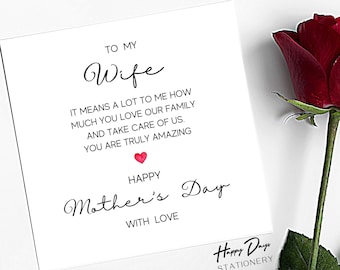 TO MY
Wife
IT MEANS A LOT TO ME HOW
MUCH YOU LOVE OUR FAMILY
AND TAKE CARE OF US.
YOU ARE TRULY AMAZING
HAPPY
Mother's Day
WITH LOVE
Happy Days
STATIONERY